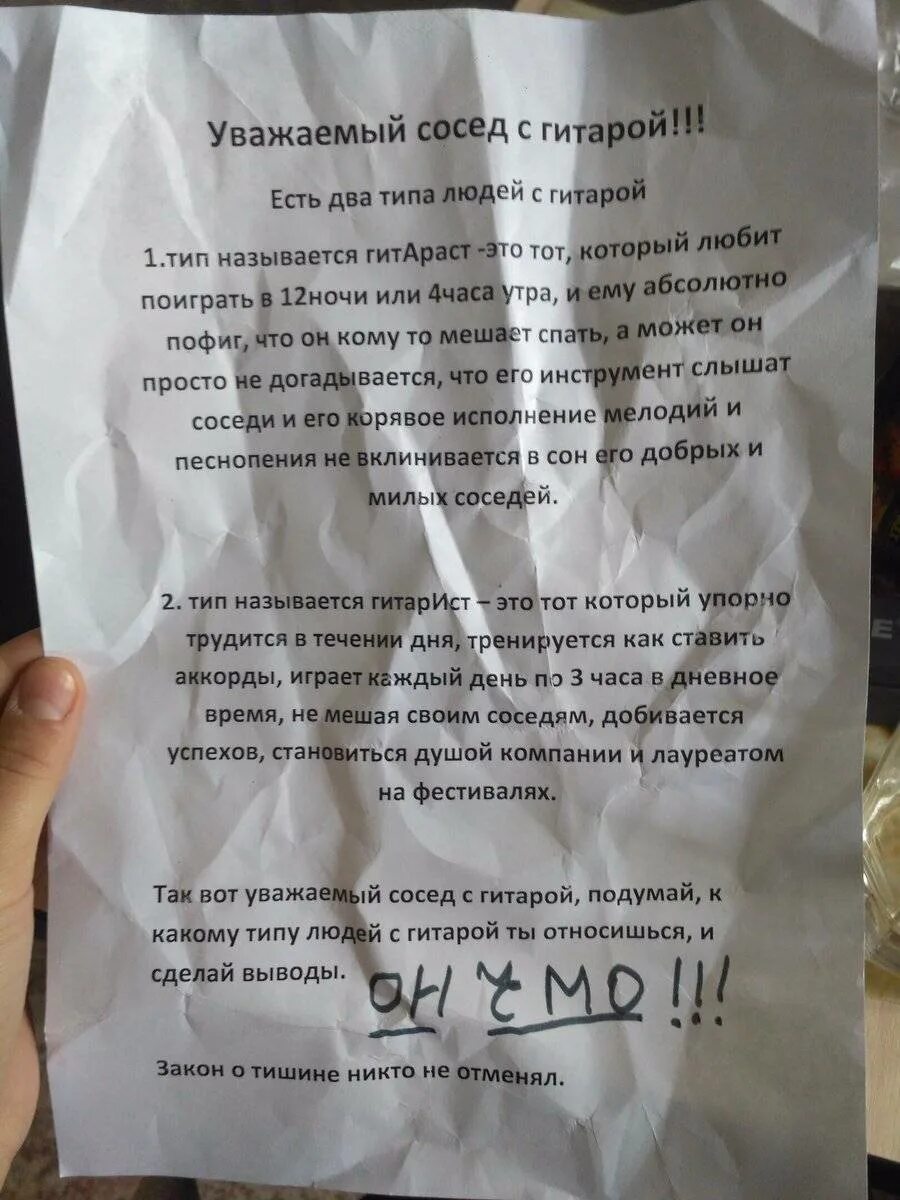 Уважаемый сосед с гитарой!!!
Есть два типа людей с гитарой
1.тип называется гитАраст -это тот, который любит
поиграть в 12ночи или 4часа утра, и ему абсолютно
пофиг, что он кому то мешает спать, а может он
просто не догадывается, что его инструмент слышат
соседи и его корявое исполнение мелодий и
песнопения не вклинивается в сон его добрых и
милых соседей.
2. тип называется гитарИст – это тот который упорно
трудится в течении дня, тренируется как ставить
аккорды, играет каждый день по 3 часа в дневное
время, не мешая своим соседям, добивается
успехов, становиться душой компании и лауреатом
на фестивалях.
Так вот уважаемый сосед с гитарой, подумай, к
какому типу людей с гитарой ты относишься, и
сделай выводы.
ОН ЧМО!!!
Закон о тишине никто не отменял.